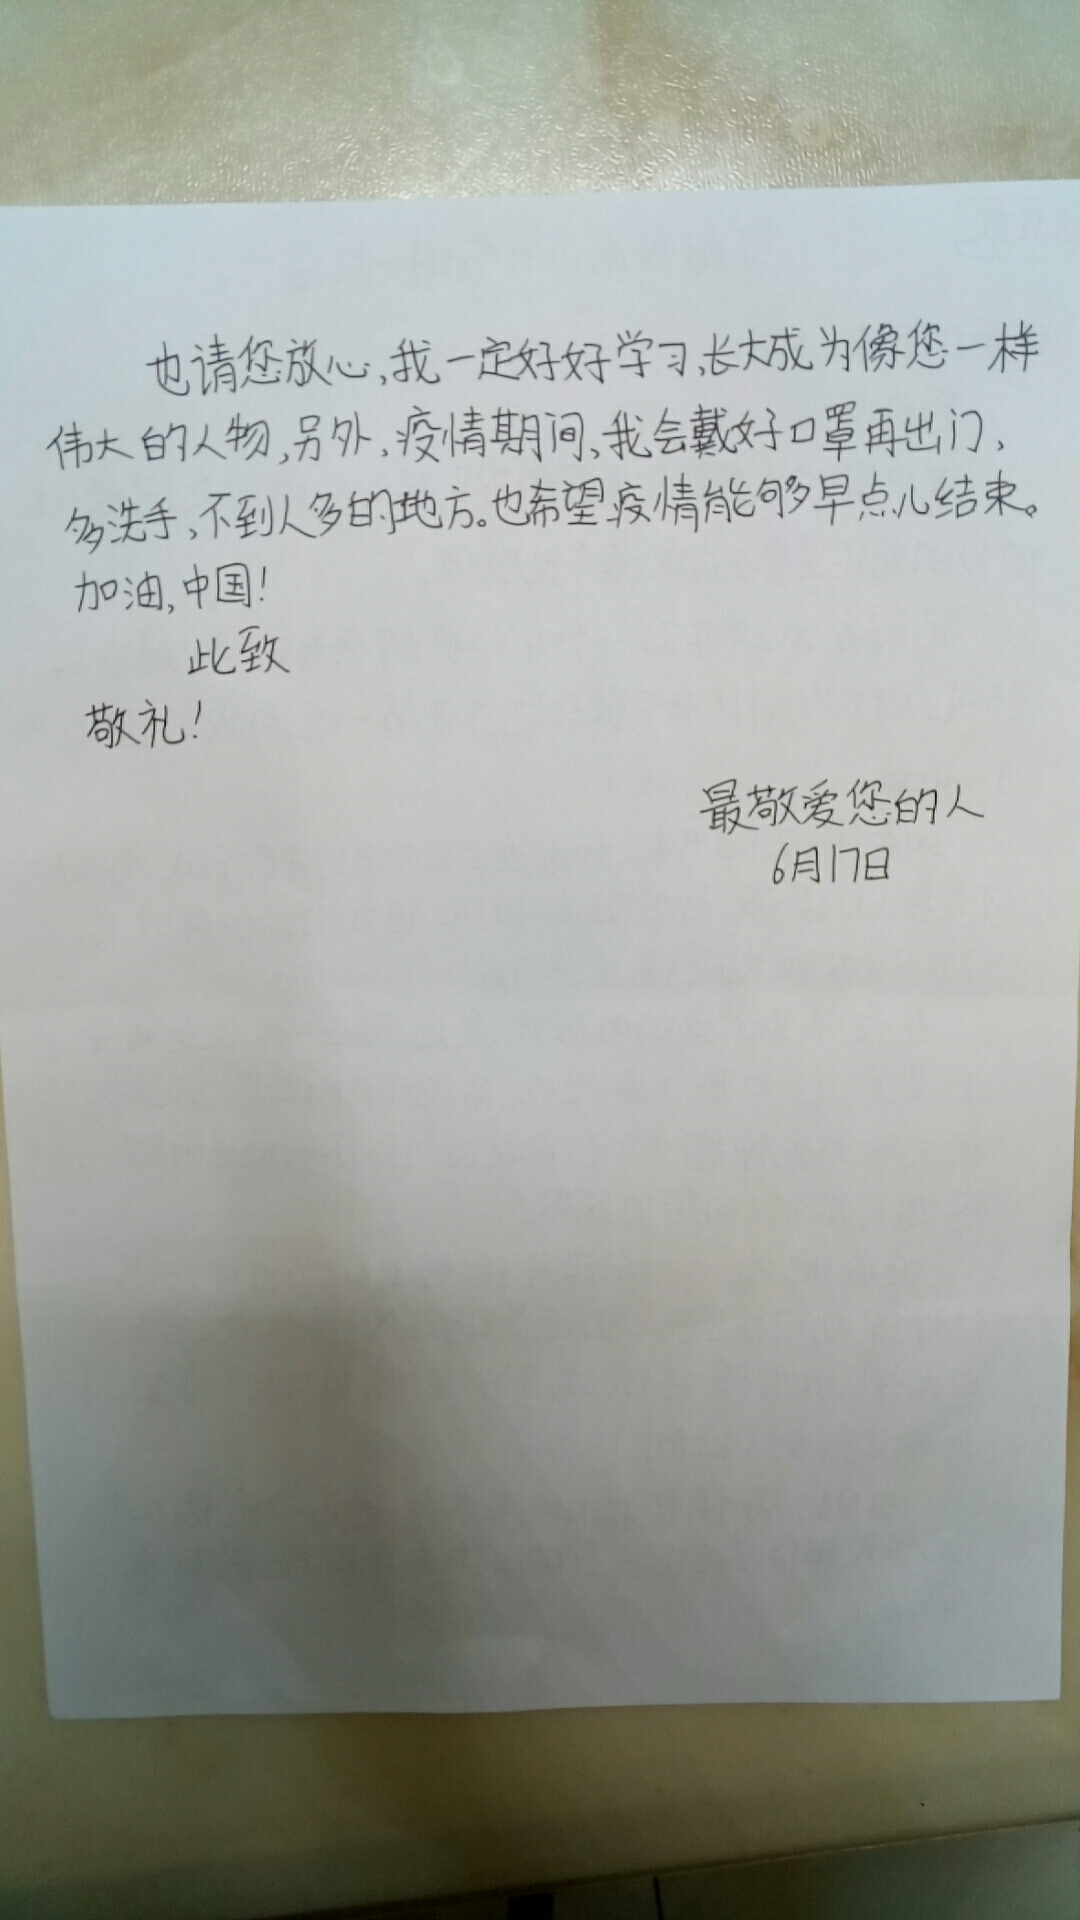 也请您放心,我一定好好学习,长大成为像您一样
伟大的人物,另外,疫情期间,我会戴好口罩再出门,
多洗手,不到人多的地方。也希望疫情能够早点儿结束。
加油,中国!
此致
敬礼!
最敬爱您的人
6月17日